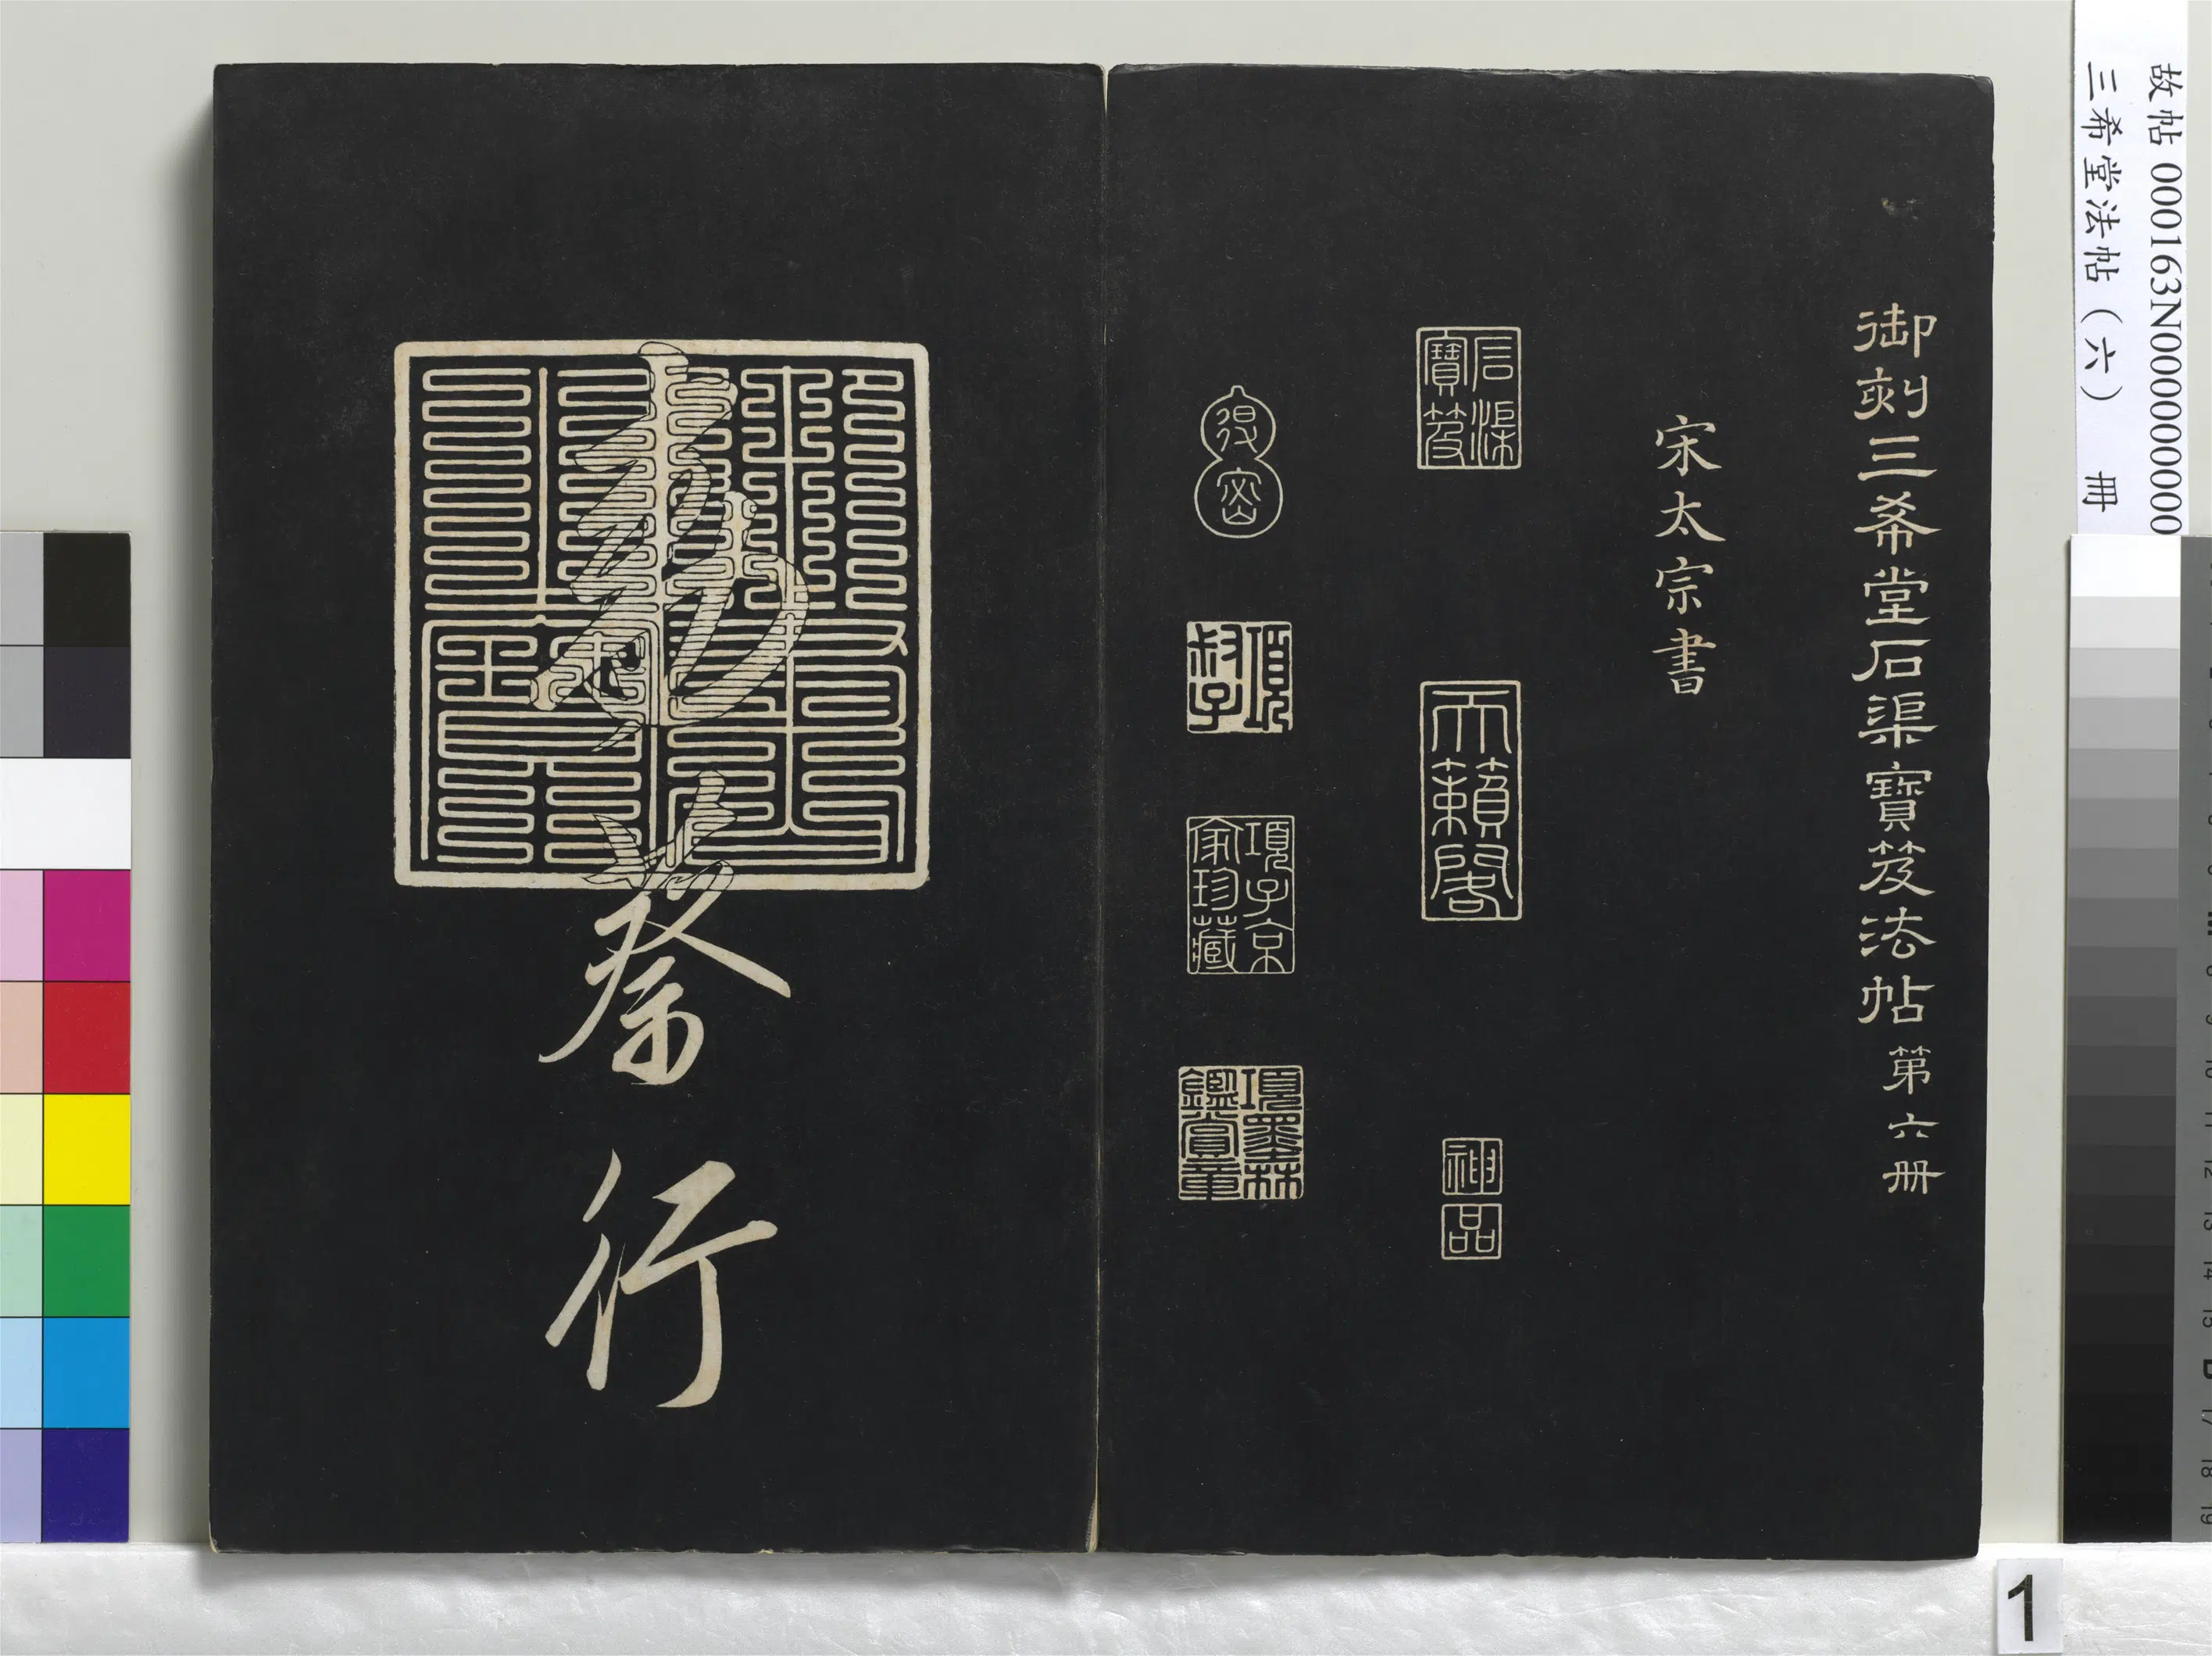 故帖 000163N000000000
三希堂法帖（六） 冊
御刻三希堂石渠寶笈法帖第六冊
宋太宗書
石渠寶笈
天籟閣
神品
項叔子
項子京家珍藏
項墨林鑑賞章
勅蔡行
1